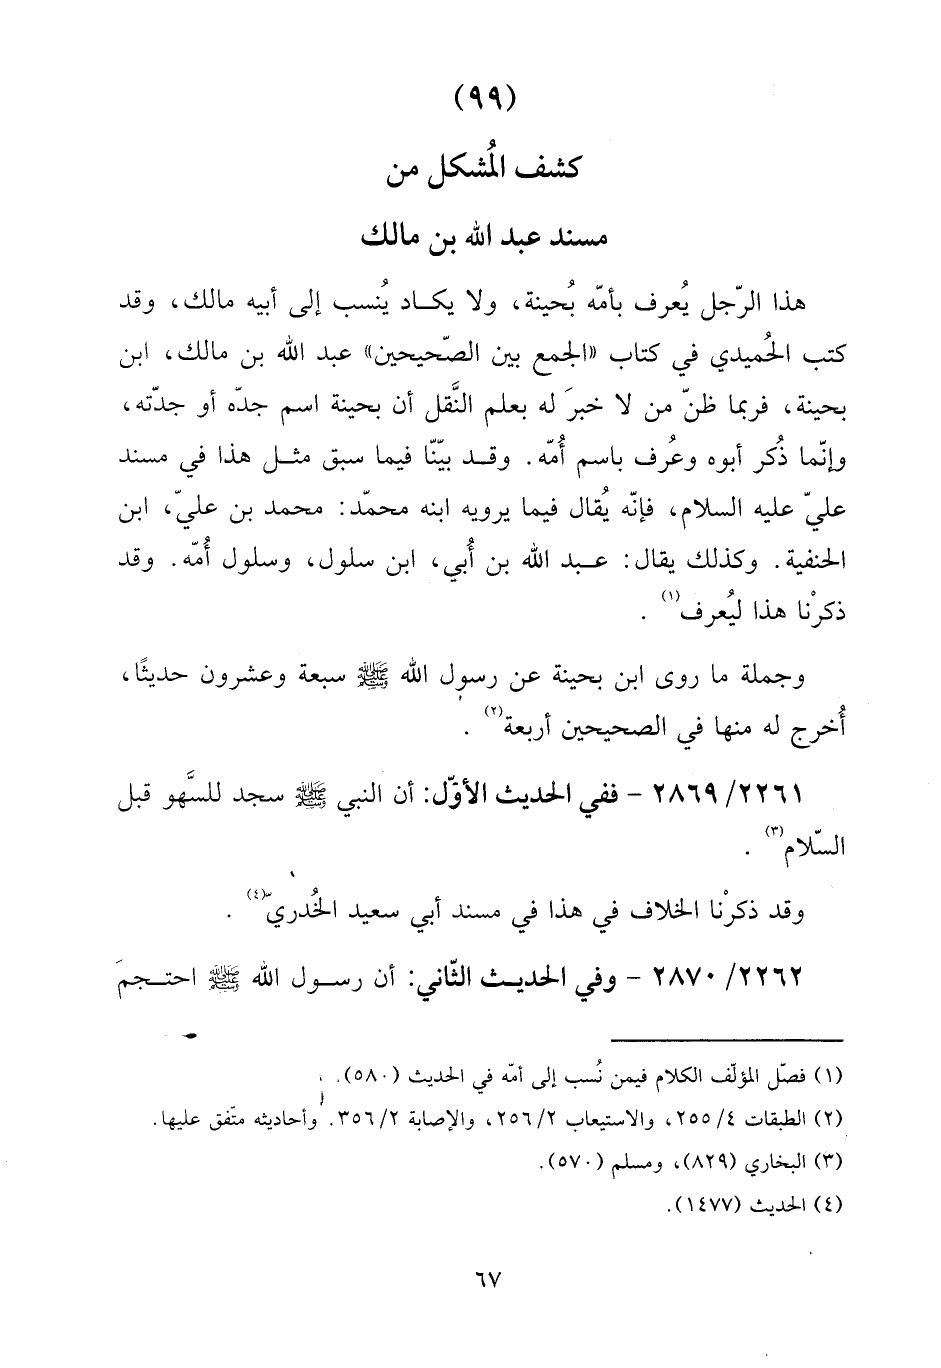 (٩٩)
كشف المُشكل من
مسند عبد الله بن مالك
هذا الرّجل يُعرف بأمّه بُحينة، ولا يكاد يُنسب إلى أبيه مالك، وقد
كتب الحُميدي في كتاب «الجمع بين الصّحيحين» عبد الله بن مالك، ابن
بحينة، فربما ظنّ من لا خبرَ له بعلم النَّقل أن بحينة اسم جدّه أو جدّته،
وإنّما ذُكر أبوه وعُرف باسم أُمّه. وقد بيّنّا فيما سبق مثل هذا في مسند
عليّ عليه السلام، فإنّه يُقال فيما يرويه ابنه محمّد: محمد بن عليّ، ابن
الحنفية. وكذلك يقال: عبد الله بن أُبي، ابن سلول، وسلول أُمّه. وقد
ذكرْنا هذا ليُعرف(١).
وجملة ما روى ابن بحينة عن رسول الله ﷺ سبعة وعشرون حديثًا،
أُخرج له منها في الصحيحين أربعة(٢).
٢٨٦٩/٢٢٦١ - ففي الحديث الأوّل: أن النبي ﷺ سجد للسَّهو قبل
السّلام(٣).
وقد ذكرْنا الخلاف في هذا في مسند أبي سعيد الخُدريّ(٤).
٢٨٧٠/٢٢٦٢ - وفي الحديث الثّاني: أن رسول الله ﷺ احتجمَ
(١) فصّل المؤلّف الكلام فيمن نُسب إلى أمّه في الحديث (٥٨٠).
(٢) الطبقات ٤/ ٢٥٥، والاستيعاب ٢/ ٢٥٦، والإصابة ٢/ ٣٥٦. وأحاديثه متّفق عليها.
(٣) البخاري (٨٢٩)، ومسلم (٥٧٠).
(٤) الحديث (١٤٧٧).
٦٧